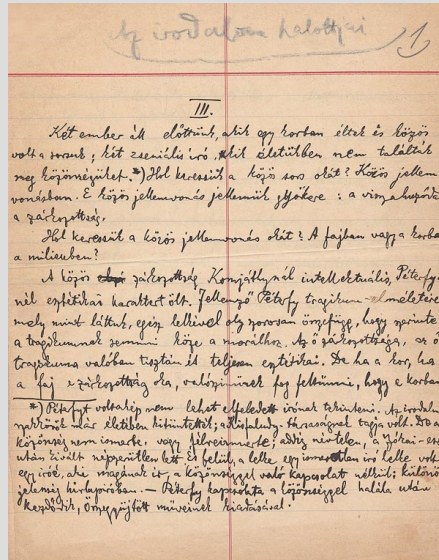 Az irodalom halottjai
1
III.
Két ember áll előttünk, akik egy korban éltek és közös
volt a sorsuk; két zseniális író, akik életükben nem találták
meg közönségüket.*) Hol keressük a közös sors okát? Közös jellem
vonásban. E közös jellemvonás jellemük gyökere: a visszahúzódó
a zárkozottság.
Hol keressük a közös jellemvonás okát? A fajban vagy a korba
a milieuben?
A közös zárkozottság Komjáthynál intellektuális, Péterfy-
nél esztétikai karaktert ölt. Jellemző Péterfy tragikum-elméletére
mely mint láttuk, egész lelkével oly szorosan összefügg, hogy szerinte
a tragikumnak semmi köze a morálhoz. Az ő zárkozottsága, az ő
tragikuma valóban tisztán és teljesen esztétikai. De ha a kor, ha
a faj e zárkozottság oka, valószínűnek fog feltűnni, hogy e korban
*) Péterfyt voltakép nem lehet elfeledett írónak tekinteni. Az irodalmi
körök már életében kitüntették; a Kisfaludy-társaság tagja volt. De a
közönség nem ismerte vagy félreismerte; addig névtelen, a Jókai-
után kivált népszerűtlen lett. És felül, a lelke egy ismeretlen író lelke volt,
egy íróé, aki magának írt, a közönséggel való kapcsolat nélkül; különö
jelenség hírlapíróban. — Péterfy kapcsolata a közönséggel halála után
kezdődik, összegyűjtött műveinek kiadásával.